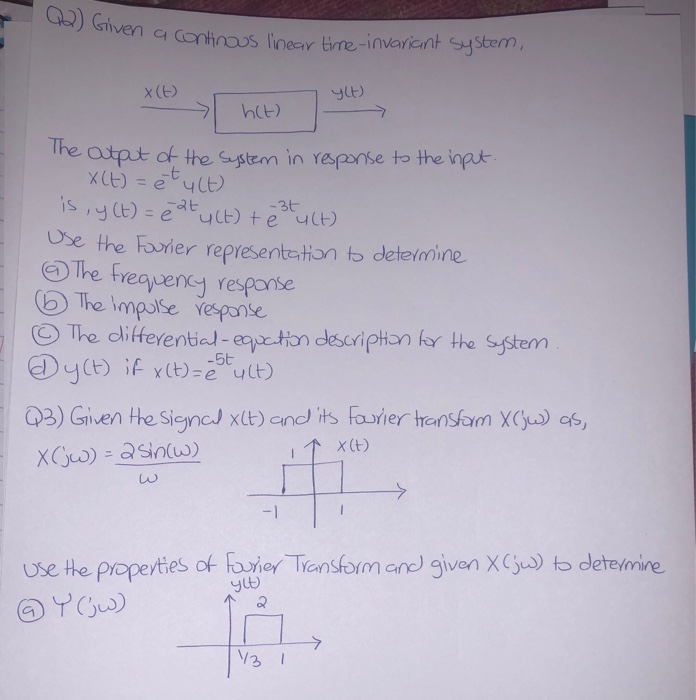 Q2) Given a continous linear time-invariant system,
x(t) y(t)
h(t)
The output of the system in response to the input.
x(t) = e^-t u(t)
is, y(t) = e^-2t u(t) + e^-3t u(t)
Use the Fourier representation to determine
(a) The frequency response
(b) The impulse response
(c) The differential-equation description for the system.
(d) y(t) if x(t)=e^-5t u(t)
Q3) Given the signal x(t) and its Fourier transform X(jω) as,
X(jω) = 2sin(ω)/ω
1 x(t)
-1 1
Use the properties of Fourier Transform and given X(jω) to determine
(a) Y(jω)
y(t)
2
1/3 1